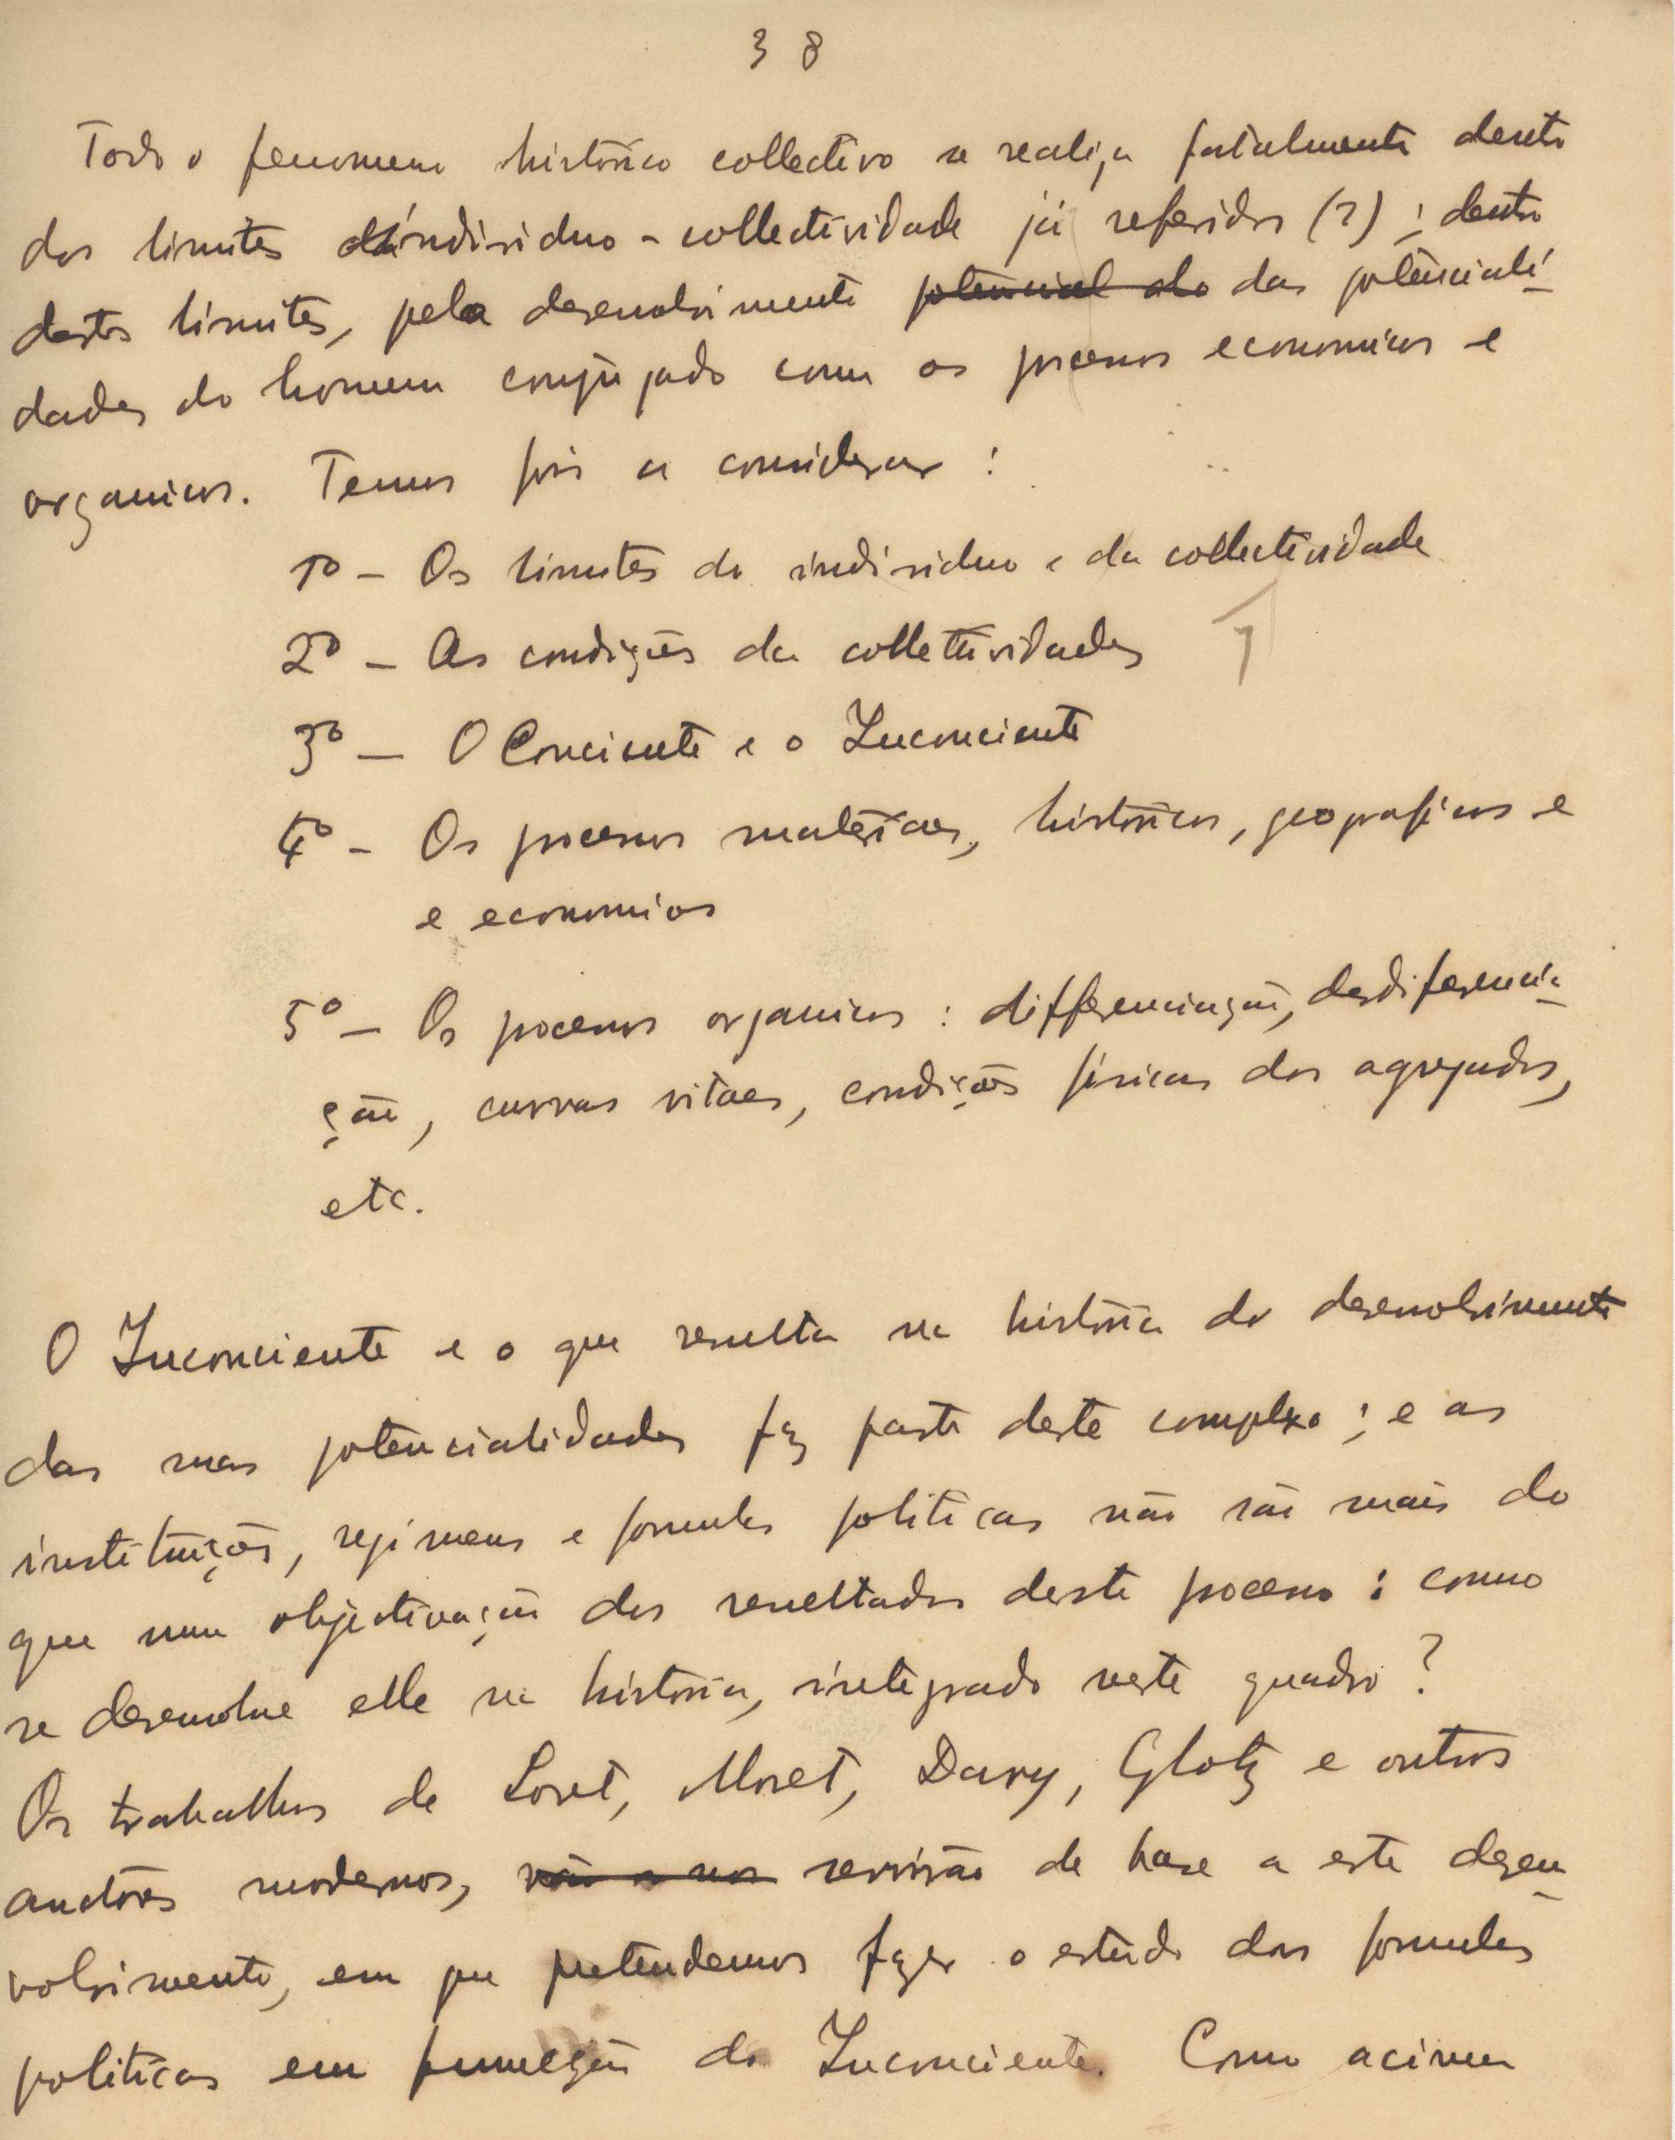 38
Todo o fenomeno historico collectivo se realiza fatalmente dentro
dos limites individuo-collectividade já referidos (?); dentro
destes limites, pelo desenvolvimento potencial do das potenciali-
dades do homem conjugado com os processos economicos e
organicos. Temos pois a considerar:
1º - Os limites do individuo e da collectividade
2º - As condições da collectividades
3º - O Conciente e o Inconciente
4º - Os processos materiaes, historicos, geograficos e
e economios
5º - Os processos organicos: differenciação, desdiferencia-
ção, curvas vitaes, condições físicas dos agregados,
etc.
O Inconciente e o que resulta na história do desenvolvimento
das suas potencialidades faz parte deste complexo; e as
instituições, regimens e formulas politicas não são mais do
que uma objectivação dos resultados deste processo: como
se desenvolve elle na história, integrado neste quadro?
Os trabalhos de Loret, Moret, Davy, Glotz e outros
auctores modernos, vão a nos servirão de base a este desen-
volvimento, em que pretendemos fazer o estudo das formulas
politicas em funcção do Inconciente. Como acima